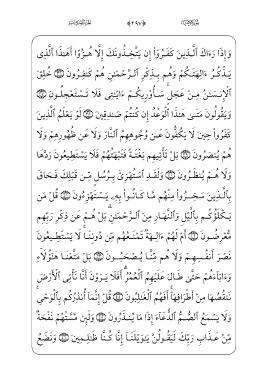 وَإِذَا رَءَاكَ ٱلَّذِينَ كَفَرُوٓا۟ إِن يَتَّخِذُونَكَ إِلَّا هُزُوًا أَهَـٰذَا ٱلَّذِى
يَذْكُرُ ءَالِهَتَكُمْ وَهُم بِذِكْرِ ٱلرَّحْمَـٰنِ هُمْ كَـٰفِرُونَ ٣٦ خُلِقَ
ٱلْإِنسَـٰنُ مِنْ عَجَلٍ سَأُو۟رِيكُمْ ءَايَـٰتِى فَلَا تَسْتَعْجِلُونِ ٣٧
وَيَقُولُونَ مَتَىٰ هَـٰذَا ٱلْوَعْدُ إِن كُنتُمْ صَـٰدِقِينَ ٣٨ لَوْ يَعْلَمُ ٱلَّذِينَ
كَفَرُوا۟ حِينَ لَا يَكُفُّونَ عَن وُجُوهِهِمُ ٱلنَّارَ وَلَا عَن ظُهُورِهِمْ وَلَا
هُمْ يُنصَرُونَ ٣٩ بَلْ تَأْتِيهِم بَغْتَةً فَتَبْهَتُهُمْ فَلَا يَسْتَطِيعُونَ رَدَّهَا
وَلَا هُمْ يُنظَرُونَ ٤٠ وَلَقَدِ ٱسْتُهْزِئَ بِرُسُلٍ مِّن قَبْلِكَ فَحَاقَ
بِٱلَّذِينَ سَخِرُوا۟ مِنْهُم مَّا كَانُوا۟ بِهِۦ يَسْتَهْزِءُونَ ٤١ قُلْ مَن
يَكْلَؤُكُم بِٱلَّيْلِ وَٱلنَّهَارِ مِنَ ٱلرَّحْمَـٰنِ بَلْ هُمْ عَن ذِكْرِ رَبِّهِم
مُّعْرِضُونَ ٤٢ أَمْ لَهُمْ ءَالِهَةٌ تَمْنَعُهُم مِّن دُونِنَا لَا يَسْتَطِيعُونَ
نَصْرَ أَنفُسِهِمْ وَلَا هُم مِّنَّا يُصْحَبُونَ ٤٣ بَلْ مَتَّعْنَا هَـٰٓؤُلَآءِ
وَءَابَآءَهُمْ حَتَّىٰ طَالَ عَلَيْهِمُ ٱلْعُمُرُ أَفَلَا يَرَوْنَ أَنَّا نَأْتِى ٱلْأَرْضَ
نَنقُصُهَا مِنْ أَطْرَافِهَآ أَفَهُمُ ٱلْغَـٰلِبُونَ ٤٤ قُلْ إِنَّمَآ أُنذِرُكُم بِٱلْوَحْىِ
وَلَا يَسْمَعُ ٱلصُّمُّ ٱلدُّعَآءَ إِذَا مَا يُنذَرُونَ ٤٥ وَلَئِن مَّسَّتْهُمْ نَفْحَةٌ
مِّنْ عَذَابِ رَبِّكَ لَيَقُولُنَّ يَـٰوَيْلَنَآ إِنَّا كُنَّا ظَـٰلِمِينَ ٤٦ وَنَضَعُ